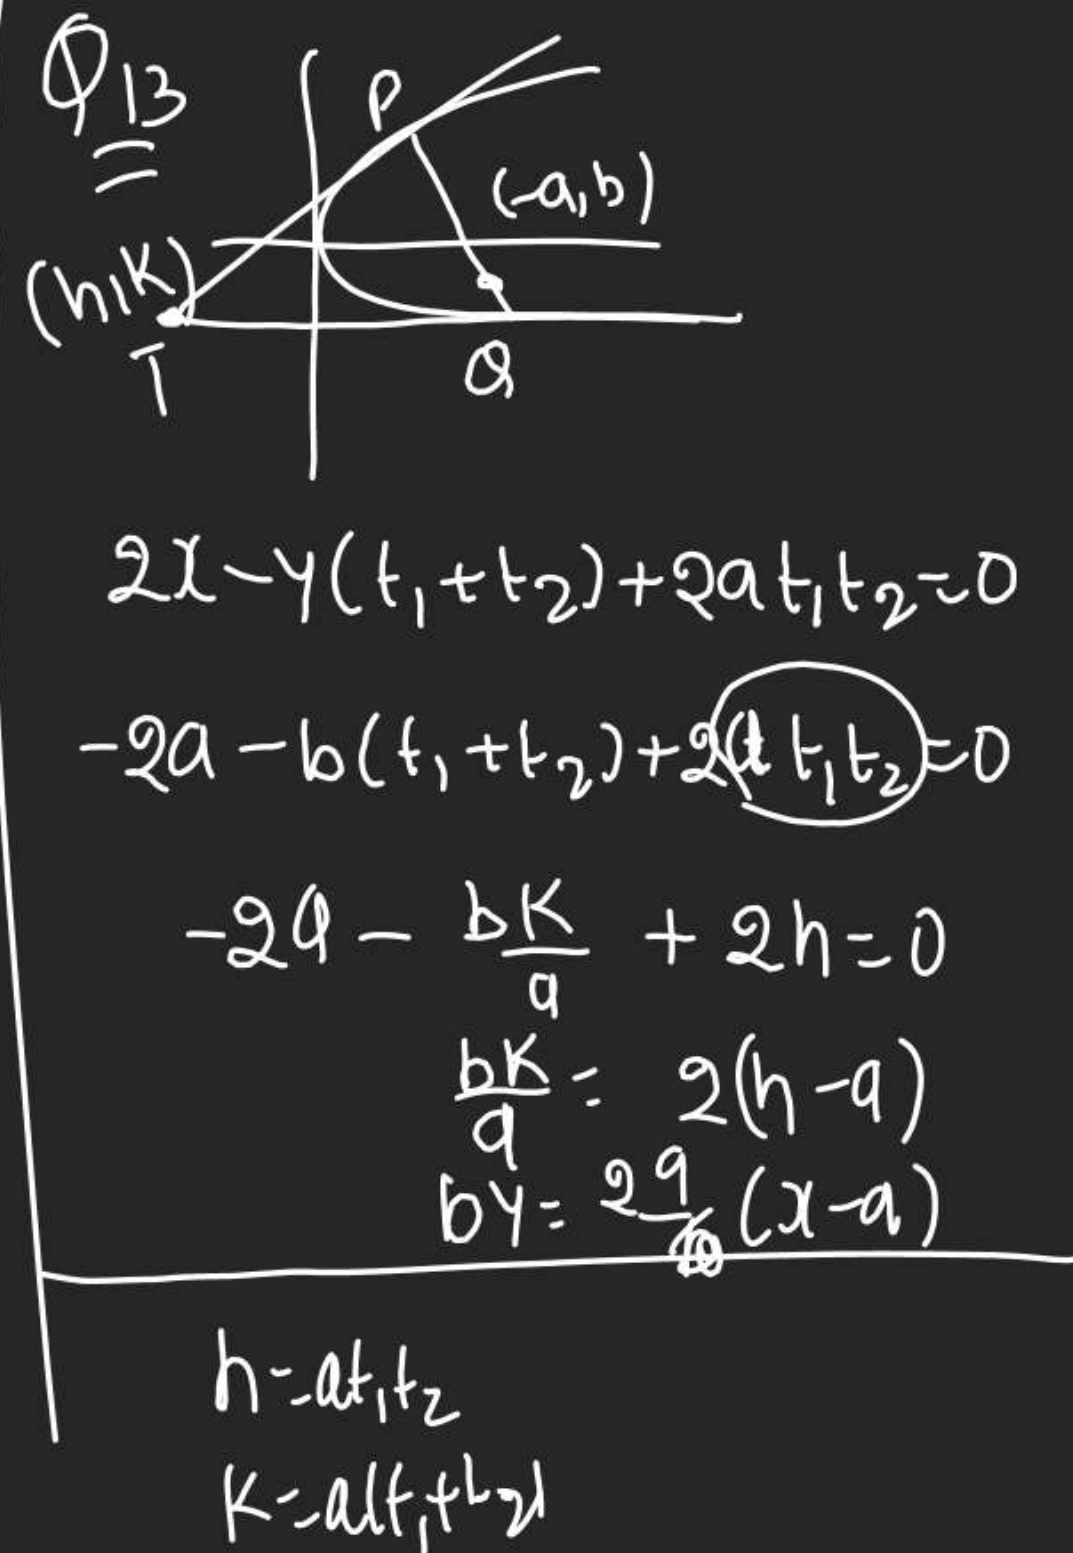 Q13
P
(-a,b)
(h,K)
T
Q
2x-y(t₁+t₂)+2at₁t₂=0
-2a-b(t₁+t₂)+2at₁t₂=0
-2a - bK/a + 2h=0
bK/a = 2(h-a)
by = 2a(x-a)
h=at₁t₂
K=a(t₁+t₂)